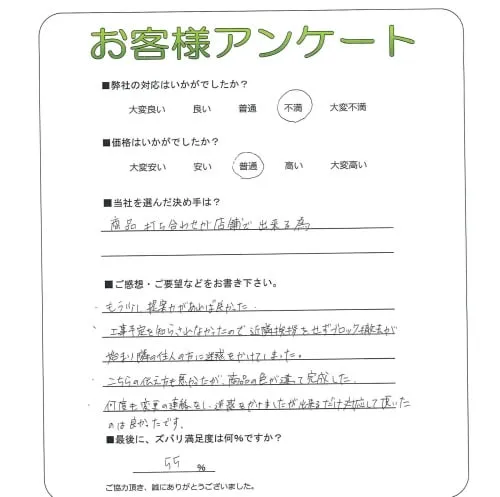 お客様アンケート
■弊社の対応はいかがでしたか？
大変良い 良い 普通 不満 大変不満
■価格はいかがでしたか？
大変安い 安い 普通 高い 大変高い
■当社を選んだ決め手は？
商品 打ち合わせが店舗で出来る為
■ご感想・ご要望などをお書き下さい。
・もう少し提案力があれば良かった．
・工事予定を知らされなかったので近隣挨拶をせずブロック撤去が
始まり隣の住人の方に迷惑をかけてしまいました。
・こちらの伝え方も悪かったが、商品の色が違って完成した．
・何度も変更の連絡をし、迷惑をかけましたが出来るだけ対応して頂いた
のは良かったです。
■最後に、ズバリ満足度は何%ですか？
55 %
ご協力頂き、誠にありがとうございました。